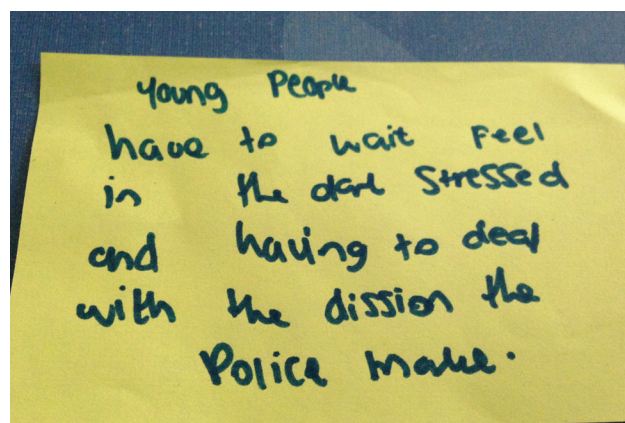 Young People
have to wait Feel
in the dark Stressed
and having to deal
with the dission the
Police make.